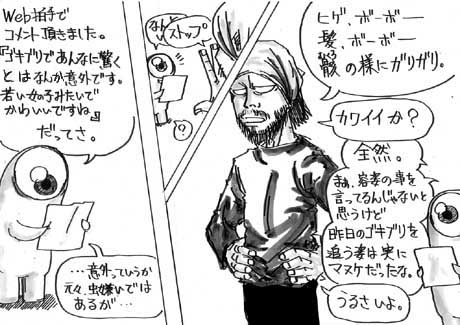 Web拍手で
コメント頂きました。
『ゴキブリであんなに驚く
とはなんか意外です。
若い女の子みたいで
かわいいですね』
だってさ。
…意外っていうか
元々、虫嫌いでは
あるが…
ストップ
?
ヒゲ、ボーボー
髪、ボーボー
骸の様にガリガリ。
カワイイか?
全然。
まぁ、容姿の事を
言ってるんじゃないと
思うけど
昨日のゴキブリを
追う姿は実に
マヌケだったな。
うるさひよ。